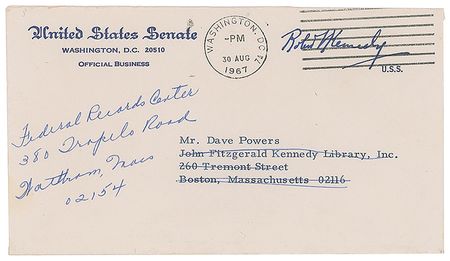 United States Senate
WASHINGTON, D.C. 20510
OFFICIAL BUSINESS
WASHINGTON, DC
-PM
30 AUG
1967
Robert F Kennedy
U.S.S.
Federal Records Center
380 Trapelo Road
Waltham, Mass
02154
Mr. Dave Powers
John Fitzgerald Kennedy Library, Inc.
260 Tremont Street
Boston, Massachusetts 02116